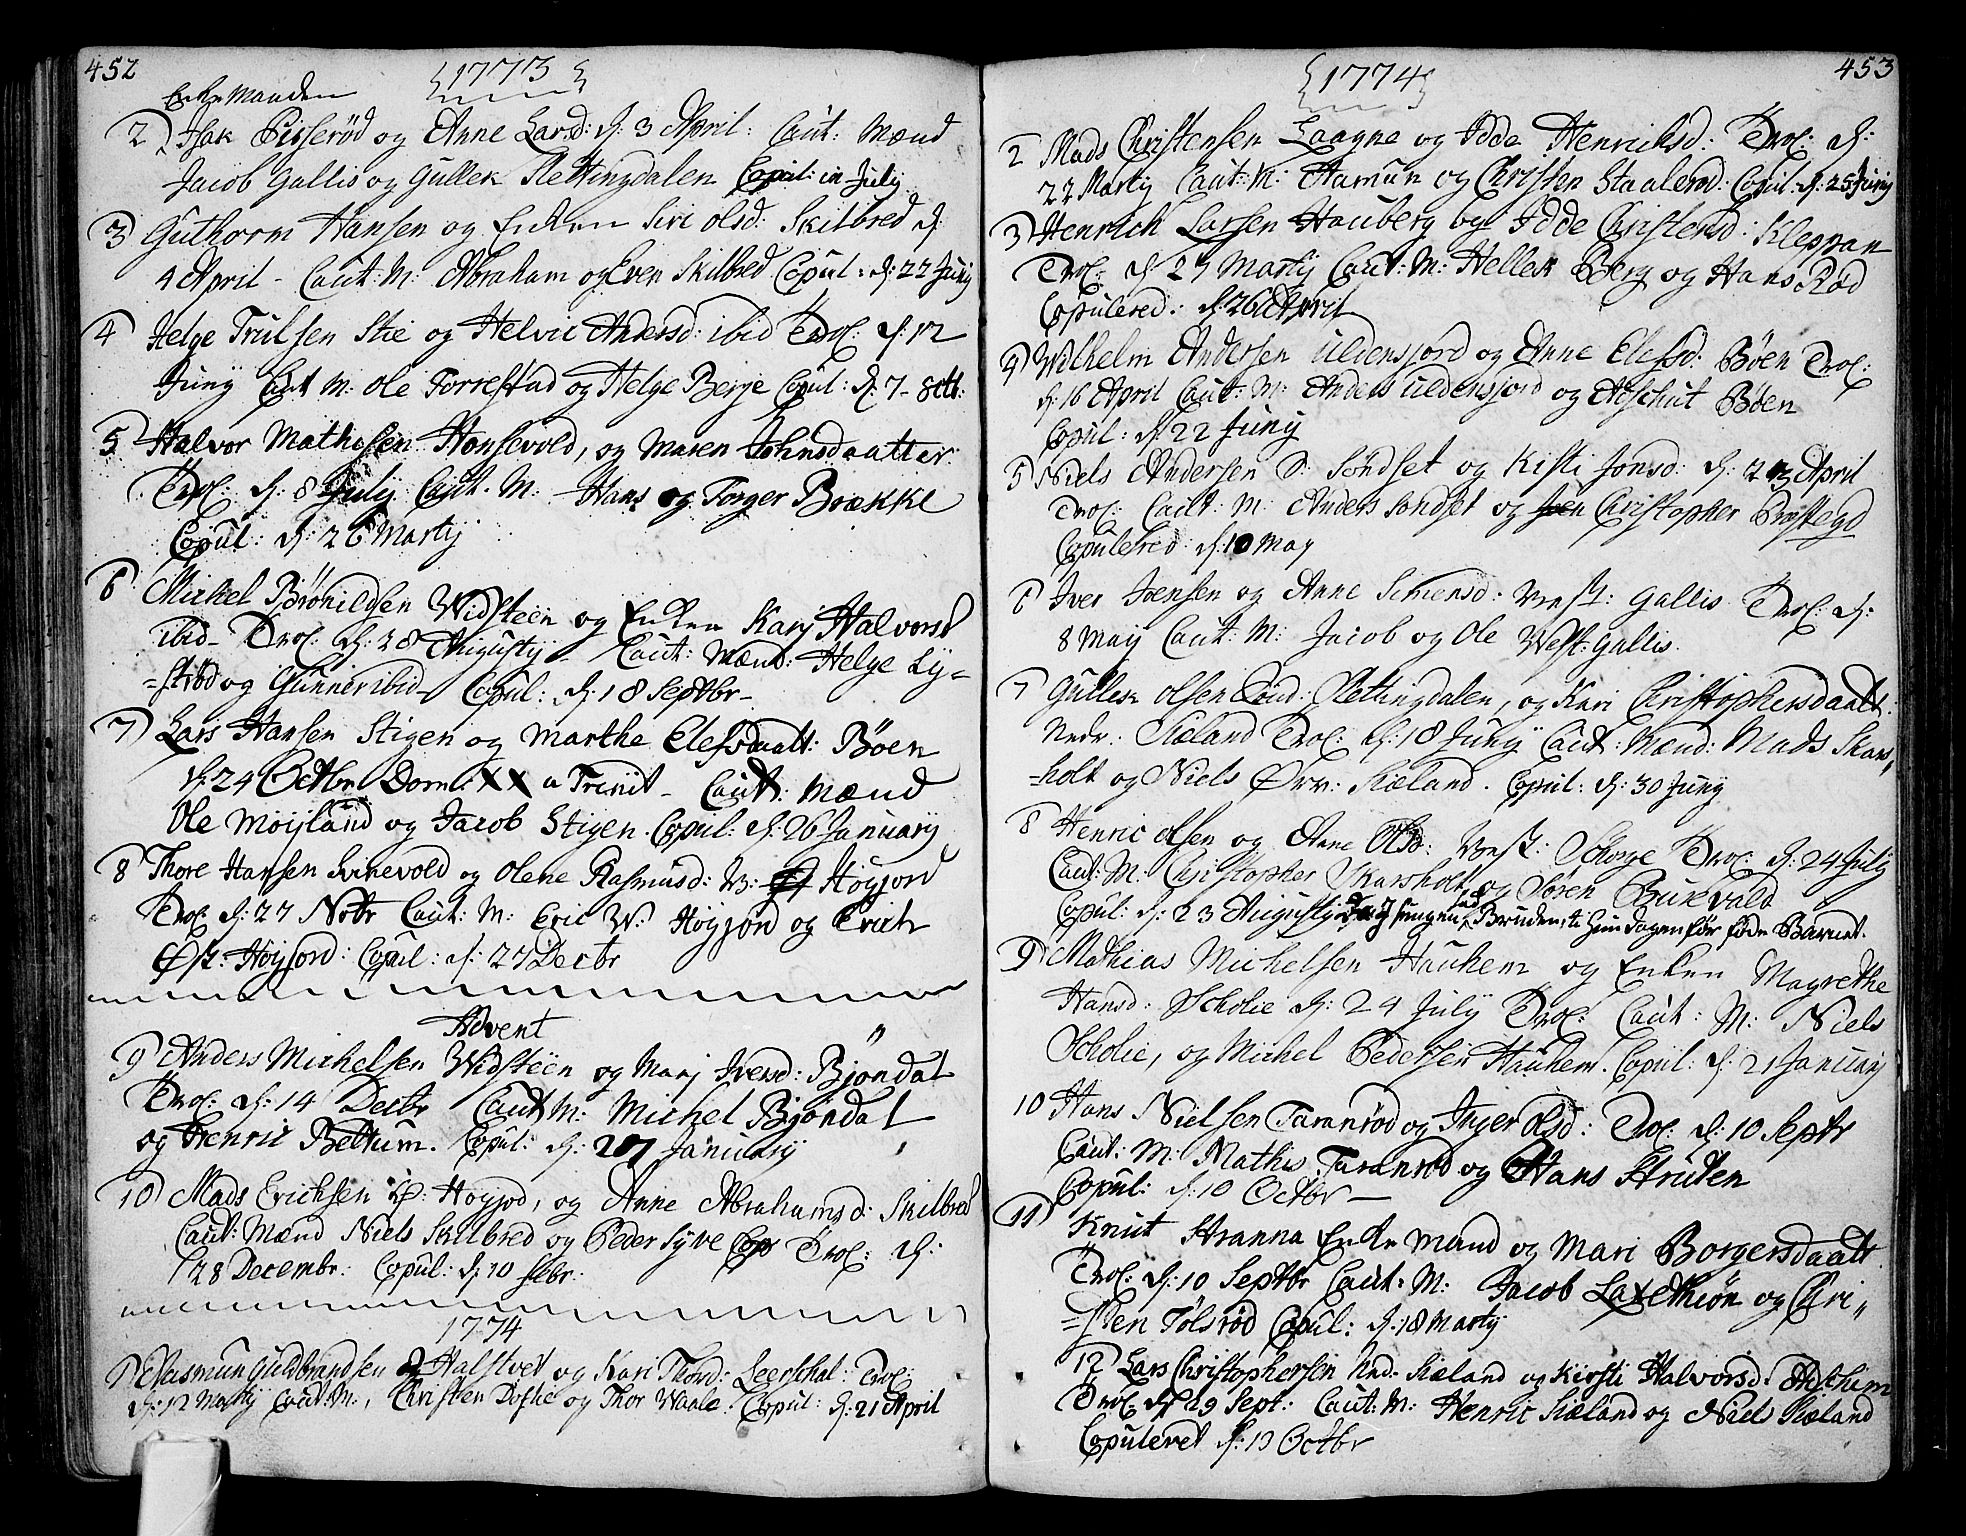 452
1773
Enke Manden
2 Isak Pisserød og Anne Larsd: d: 3 April: Caut: Mænd
Jacob Gallis og Gullek Slettingdalen Copul: in July
3 Guthorm Hansen og Enken Siri Olsd: Skilbred d:
4 April - Caut: M: Abraham og Even Skilbred Copul: d: 22 Juny
4 Helge Trulsen Stie og Helvic Andersd: ibid Trol: d: 12
Juny Caut M: Ole Torrestad og Helge Berje Copul: d: 7 - 8ctt:
5 Halvor Mathisen Honsevold, og Maren Johnsdaatter
Trol: d: 8 July Caut. M: Hans og Torger Brække
Copul: d: 26 Martij
6 Mickel Brønildsen Widsteen og Enken Karj Halvorsd
ibid - Trol: d: 28 Augustij - Caut: Mænd: Helge Ly=
=stibd og Gunner ibid - Copul: d: 18 Septbr -
7 Lars Hansen Stigen og Marthe Elefsdaatt: Bøen
d: 24 Octbr Dom: XX a Trinit - Caut: Mænd
Ole Moijland og Jacob Stigen. Copul: d: 26 Januarij
8 Thore Hansen Svinevold og Olene Rasmusd: W: Høyjord
Trol: d: 27 Novbr Caut: M: Eric W: Høyjord og Erich
Øst: Høyjord: Copul: d: 27 Decbr
Advent
9 Anders Michelsen Widsteen og Marj Iversd: Bjøndal
Trol: d: 14 Decbr Caut M: Michel Bjøndal
og Henric Bettum. Copul: d: 27 Januarij
10 Mads Erichsen Høyjod, og Anne Abrahamsd: Skilbred
Caut: Mænd Niels Skilbred og Peder Syve Trol: d:
28 Decembr: Copul: d: 10 Febr:
1774
1 Rasmun Guldbrandsen Halstvet og Kari Thord: Leersthal: Trol:
d: 12 Martij Caut: M: Christen Dofhe og Thor Waale. Copul: d: 21 April
453
1774
2 Mads Christensen Laagne og Idde Henriksd: Trol: d:
22 Martij Caut: M: Aamun og Christen Staalerød. Copul: d: 25 Junij
3 Henrich Larsen Hauberg og Idde Christensd: Kleppan
Trol: d: 27 Martij Caut: M: Hellek Berg og Hans Rød
Copulered: d: 26 April
4 Wilhelm Andersen Uldensjord og Anne Elefsd: Bøen Trol:
d: 16 April Caut: M: Anders Uldensjord og Adschut Bøen
Copul: d: 22 Junij
5 Niels Andersen S: Søndset og Kisti Jonsd: d: 23 April
Trol: Caut: M: Anders Sondset og Christopher Præstegd
Copulered: d: 10 May
6 Iver Joensen og Anne Simensd: West: Gallis Trol: d:
8 Maij Caut: M: Jacob og Ole West: Gallis.
7 Gullek Olsen Slettingdalen, og Kari Christophersdaatt:
Nedr: Skeland Trol: d: 18 Junij Caut: Mænd: Mads Skars,
=holt og Niels Øvr: Skeland. Copul: d: 30 Junij
8 Henric Olsen og Anne Olsd: West: Schorge Trol: d: 24 Julij
Caut: M: Christopher Skarsholt og Søren Bukvald
Copul: d: 23 Augustij Sengen Bruden, ti hun dagen før føde Barnet.
9 Mathias Michelsen Hauhem og Enken Magrethe
Hansd: Scholie d: 24 Julij Trol: Caut: M: Niels
Scholie, og Michel Pedersen Hauhem. Copul: d: 21 Januarij
10 Hans Nielsen Taranrød og Inger Olsd: Trol: d: 10 Septbr
Caut: M: Mathis Taranrød og Hans Struten
Copul: d: 10 Octbr -
11 Knut Hranna Enke Mand og Mari Borgersdaatt
Trol: d: 10 Septbr Caut: M: Jacob Laxethiøn og Chri"
=sten Tølsrød Copul: d: 18 Martij
12 Lars Christophersen Ned: Skeland og Kirsti Halvorsd: Askhiem
Trol: d: 29 Sept: Caut: M: Henric Skeland og Niels Skeland
Copuleret d: 13 Octbr